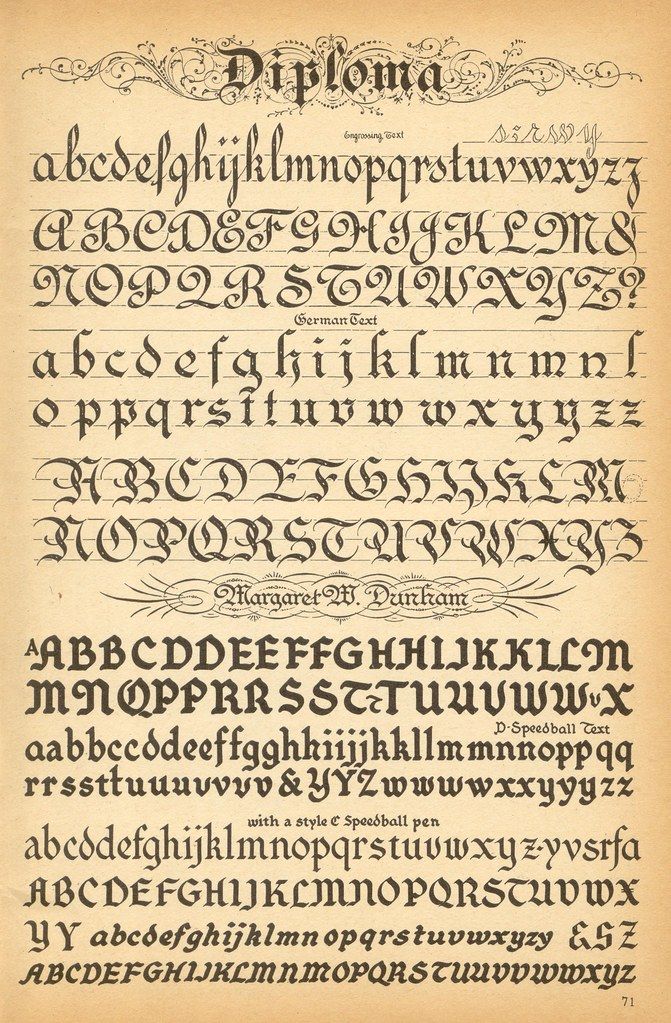 Diploma
Engrossing Text
s s r w y
abcdefghijklmnopqrstuvwxyzz
ABCDEFGHIJKLM&
NOPQRSTUWXYZ?
German Text
abcdefghijklmnmnl
oppqrsſttuvwwxyyzz
ABCDEFGHIJKLM
NOPQRSTUVWXYZ
Margaret W. Dunham
AABBCDDEEFFGHHIJKKLLM
MNQPPRRSSTTTUUVWWvX
D-Speedball Text
aabbccddeeffgghhiijjkkllmmnnoppqq
rrssttuuuuvvvv&YYZwwwwxxyyyzz
with a style C Speedball pen
abcddefghijklmnopqrstuvwxyz-yvsrfa
ABCDEFGHIJKLMNOPQRSTUVWX
YY abcdefghijklmnopqrstuvwxyzy &SZ
ABCDEFGHIJKLMNMOPQRSTUUVVWWXYZ
71